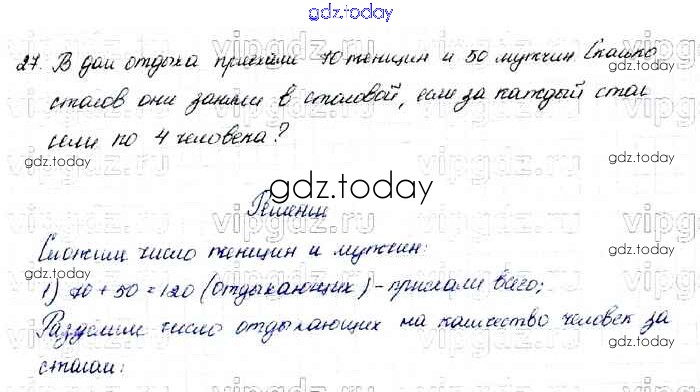 gdz.today
27. В дом отдыха приехали 70 женщин и 50 мужчин. Сколько
столов они заняли в столовой, если за каждый стол
сели по 4 человека?
gdz.today
gdz.today
gdz.today
Решение
Сложим число женщин и мужчин:
1) 70 + 50 = 120 (отдыхающих) - приехали всего;
Разделим число отдыхающих на количество человек за
столом:
gdz.today
gdz.today
vipgdz.ru